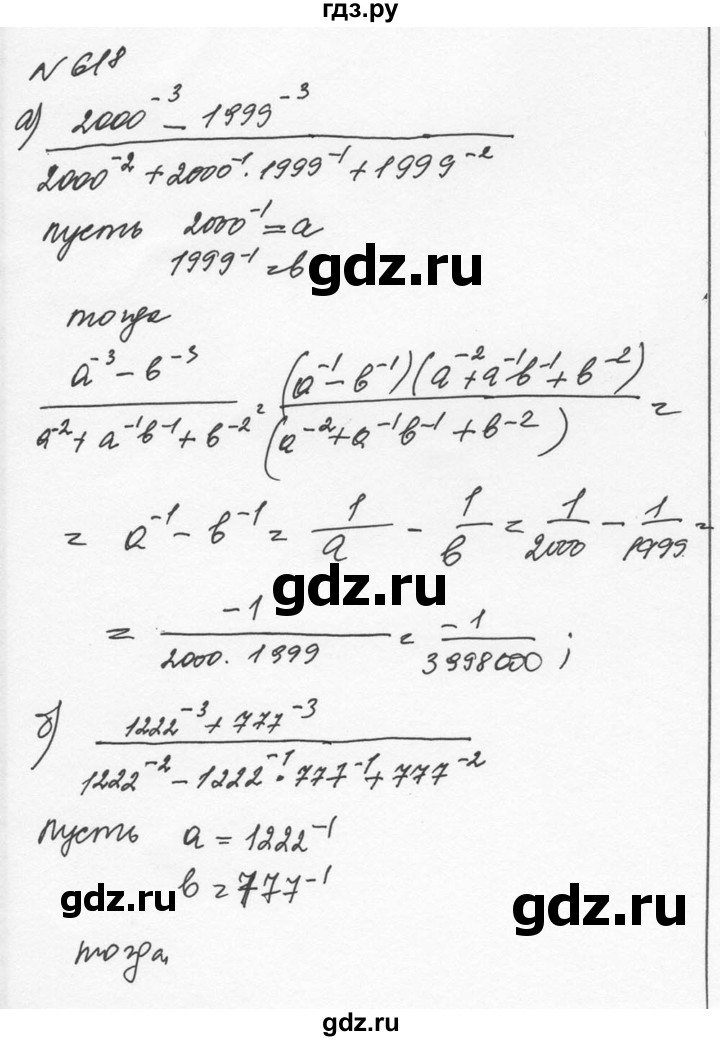 гдз.ру
N 618
а) (2000⁻³ − 1999⁻³) / (2000⁻² + 2000⁻¹ · 1999⁻¹ + 1999⁻²)
пусть 2000⁻¹ = a
1999⁻¹ = в
gdz.ru
тогда
(a⁻³ − в⁻³) / (a⁻² + a⁻¹в⁻¹ + в⁻²) = (a⁻¹ − в⁻¹)(a⁻² + a⁻¹в⁻¹ + в⁻²) / (a⁻² + a⁻¹в⁻¹ + в⁻²) =
= a⁻¹ − в⁻¹ = 1/a − 1/в = 1/2000 − 1/1999 =
gdz.ru
= −1 / (2000 · 1999) = −1 / 3998000 ;
б) (1222⁻³ + 777⁻³) / (1222⁻² − 1222⁻¹ · 777⁻¹ + 777⁻²)
пусть a = 1222⁻¹
в = 777⁻¹
gdz.ru
gdz.ru
тогда
gdz.ru